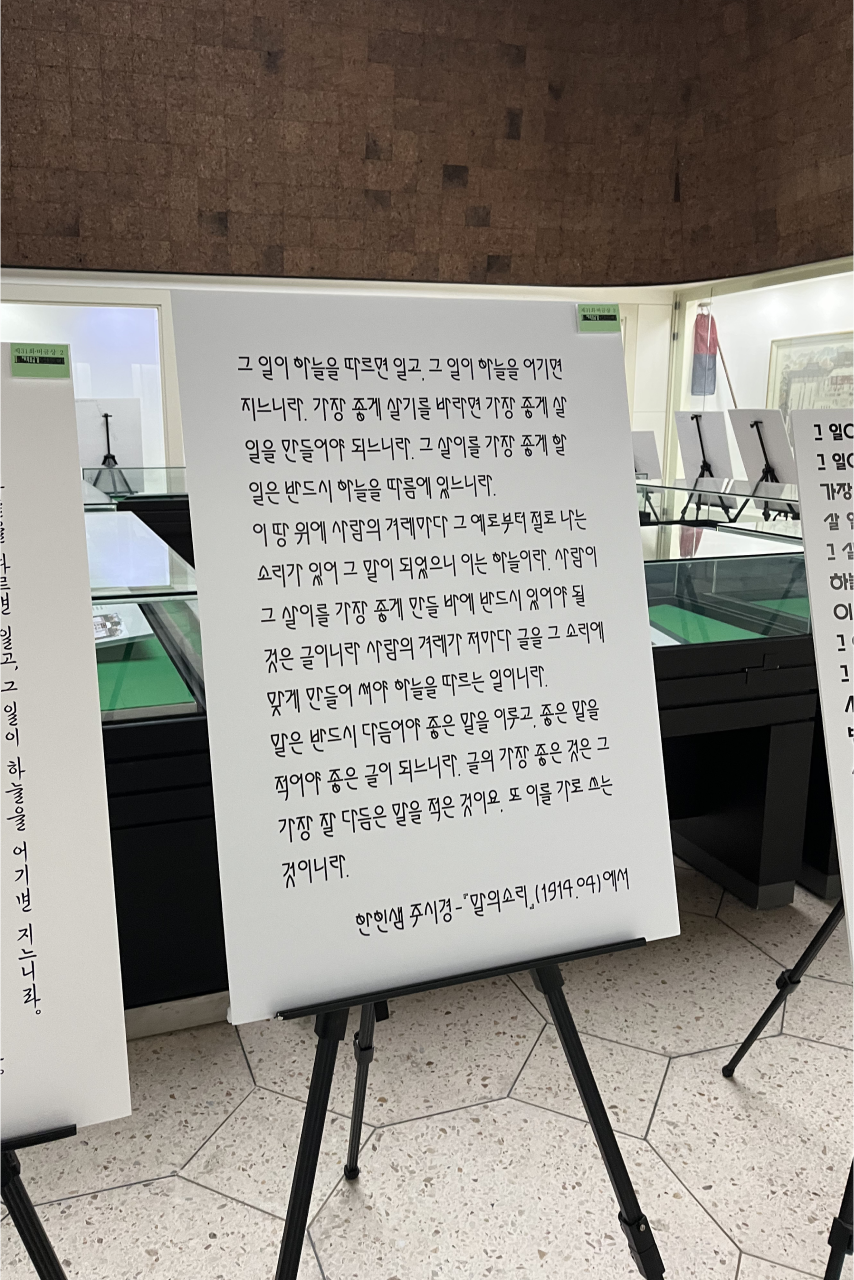 그 일이 하늘을 따르면 일고, 그 일이 하늘을 어기면
지느니라. 가장 좋게 살기를 바라면 가장 좋게 살
일을 만들어야 되느니라. 그 살이를 가장 좋게 할
일은 반드시 하늘을 따름에 있느니라.
이 땅 위에 사람의 겨레마다 그 예로부터 절로 나는
소리가 있어 그 말이 되었으니 이는 하늘이라. 사람이
그 살이를 가장 좋게 만들 바에 반드시 있어야 될
것은 글이니라 사람의 겨레가 저마다 글을 그 소리에
맞게 만들어 써야 하늘을 따르는 일이니라.
말은 반드시 다듬어야 좋은 말을 이루고, 좋은 말을
적어야 좋은 글이 되느니라. 글의 가장 좋은 것은 그
가장 잘 다듬은 말을 적은 것이요. 또 이를 가로 쓰는
것이니라.
한힌샘 주시경-『말의소리』(1914.04)에서
일고, 그 일이 하늘을 어기면 지느니라.
그 일이
가장
살
하늘